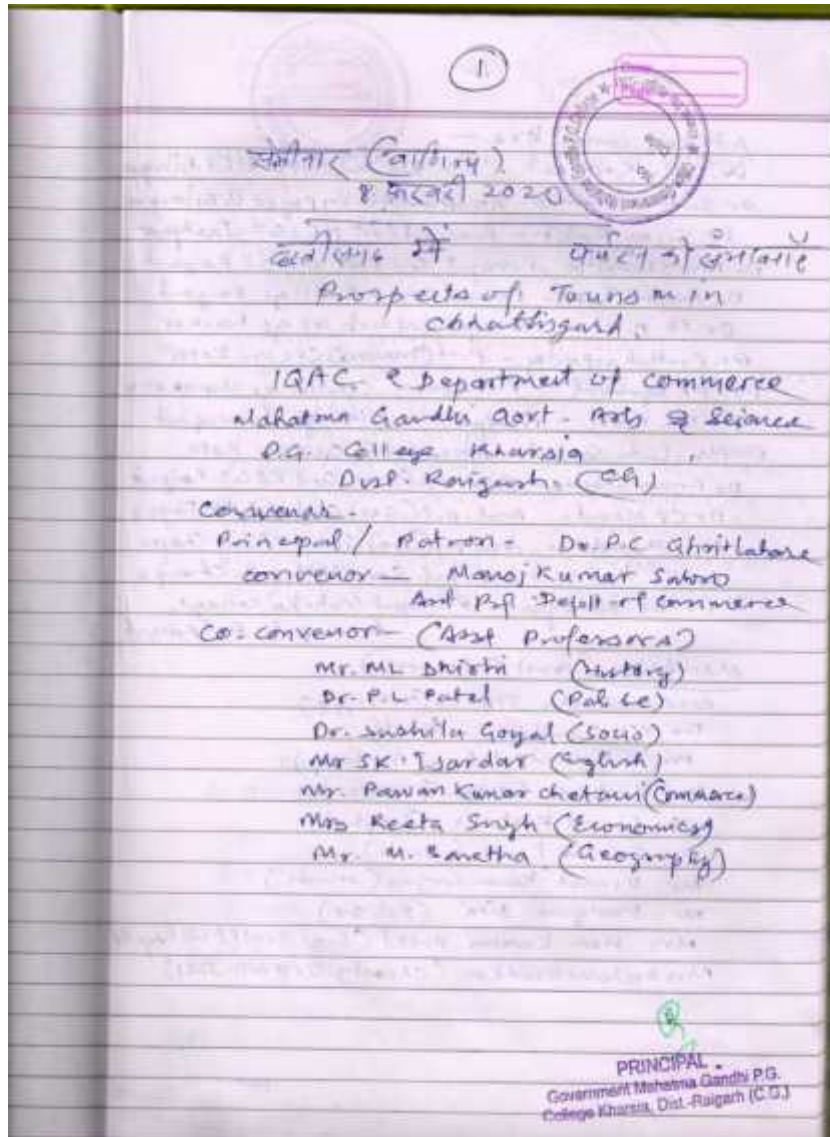 1
सेमीनार (वाणिज्य)
8 फरवरी 2020
छत्तीसगढ़ में पर्यटन की संभावनाएँ
Prospects of Tourism in
Chhattisgarh.
IQAC & Department of Commerce
Mahatma Gandhi Govt. Arts & Science
P.G. College Kharsia
Dist. Raigarh (CG)
Convenor-
Principal / Patron- Dr. P.C Ghritlahare
convenor- Manoj Kumar
Asst. Prof. Deptt. of Commerce
Co-convenor- (Asst Professors)
Mr. ML Dhirhi (History)
Dr. P.L. Patel (Pol Sc)
Dr. Sushila Goyal (Socio)
Mr SK Ijardar (English)
Mr. Pawan Kumar (Commerce)
Mrs Reeta Singh (Economics)
Mr. M. (Geography)
PRINCIPAL
Government Mahatma Gandhi P.G.
College Kharsia, Dist.-Raigarh (C.G.)